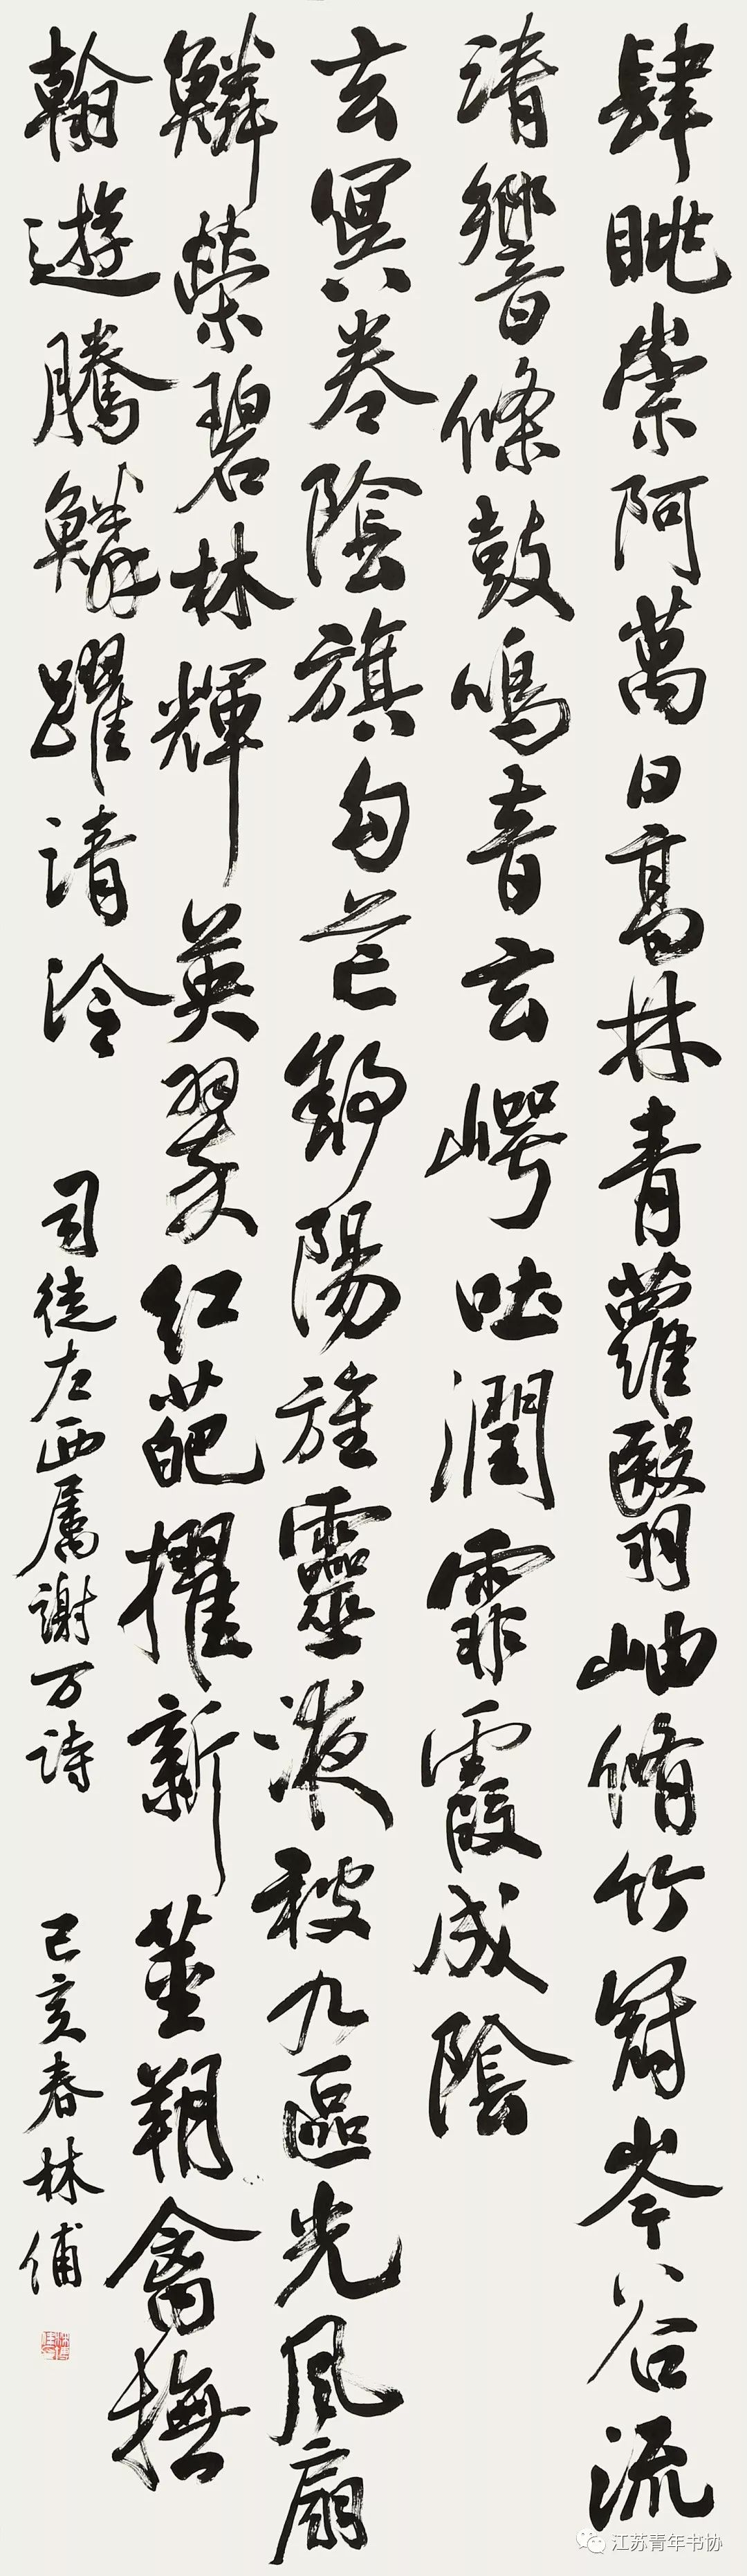 肆眺崇阿萬日高林青蘿翳岫脩竹冠岑谷流
清響條鼓鳴音玄崿吐潤霏霞成陰
玄冥卷陰旗勾芒舒陽旌靈液被九區光風扇
鱗榮碧林輝英翠紅葩擢新莖翔禽撫
翰遊騰鱗躍清泠
司徒左西属謝万詩
己亥春林俌
江苏青年书协